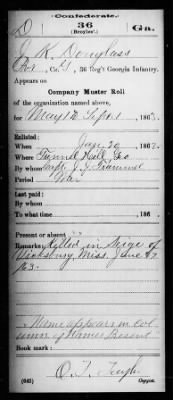 Confederate.
D 36 Ga.
(Broyles'.)
J. R. Douglass
Pvt, Co. G, 36 Reg't Georgia Infantry.
Appears on
Company Muster Roll
of the organization named above,
for May 1 to Sept 1, 1863.
Enlisted:
When Jan 30, 1862.
Where Tunnel Hill, Geo
By whom Capt. J. J.
Period War
Last paid:
By whom
To what time , 186 .
Present or absent
Remarks: Killed in Siege of
Vicksburg, Miss. June 17
63.
Name appears in col
umn of Names Present
Book mark:
(642) Copyist.